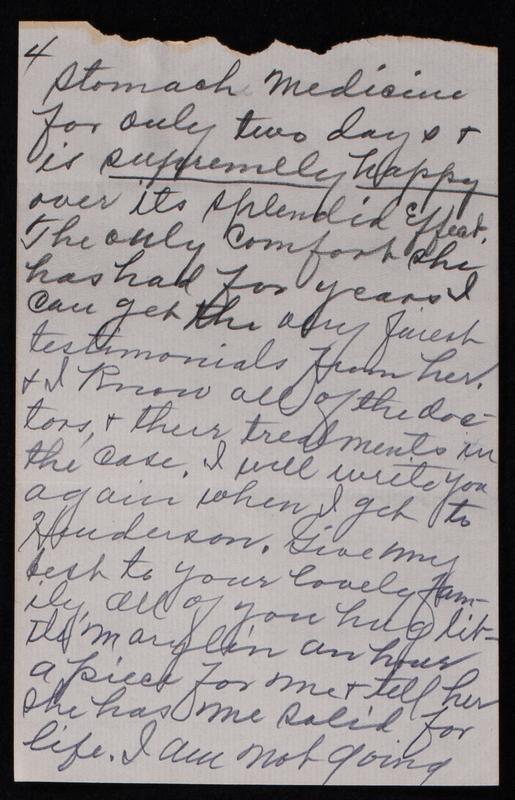 4
Stomach Medicine
for only two days +
is supremelly happy
over its splendid effect.
The only comfort she
has had for years I
can get the very finest
testimonials from her.
+ I know all of the doc-
tors, + their treatments in
the case. I will write you
again when I get to
Henderson. Give my
best to your lovely fam-
ily, all of you hug lit-
tle Marylin an hour
a piece for me + tell her
she has me solid for
life. I am not going